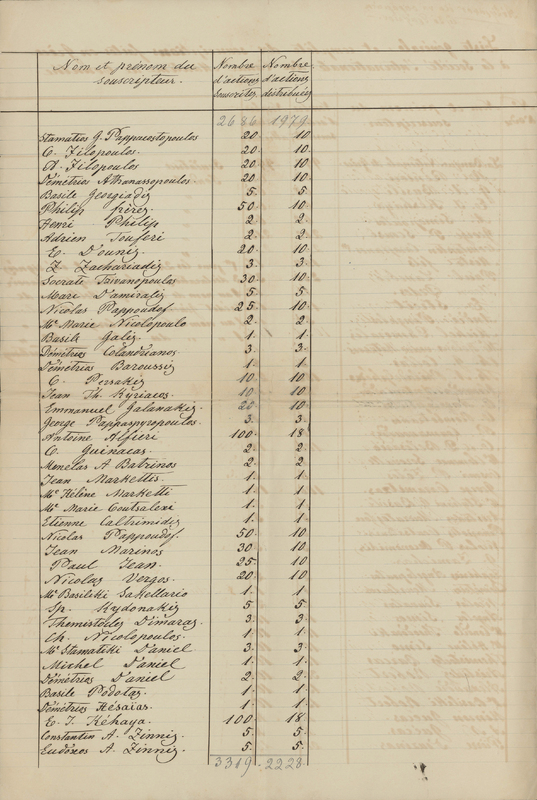 Nom et prénom du souscripteur. Nombre d'actions souscrites Nombre d'actions distribuées
2686 1979
Stamatios G. Pappacostopoulos 20. 10
C. Filopoulos. 20. 10.
A. Filopoulos 20. 10
Démétrios Athanassopoulos 20 10
Basile Georgiadis 5. 5
Philip frères. 50. 10.
Henri Philip 2. 2
Adrien 2. 2.
E. D'ounis. 20. 10
Z. Zachariadis 3. 3.
Socrate 30. 10
Mari D'amiralis 5. 5
Nicolas Pappoudof. 25. 10.
Me Marie Nicolopoulo 2. 2
Basile Galis. 1. 1
Démétrios Colandrianos 3. 3.
Démétrios Baroussis 1. 1
C. Persakis 10. 10.
Jean Th. Kyriacos. 10. 10
Emmanuel Galanakis. 20. 10
George Pappaspyropoulos. 3. 3
Antoine Alfieri 100. 18
C. Guinacas. 2. 2.
Menelas A Batrinos 2. 2
Jean Markettis. 1. 1
Me Hélène Marketti 1. 1
Me Marie Coutsaleni 1. 1.
Etienne Caltrimidis 1. 1
Nicolas Pappoudof. 50. 10
Jean Marinos 30. 10
Paul Jean. 25. 10
Nicolas Vergos. 20. 10
Me Basiliki Sakellario 1. 1
Sp. Kydonakis 5. 5.
Themistocles Dimaras. 3. 3
Ch. Nicolopoulos. 1. 1.
Me Stamatiki D'aniel 3. 3
Michel D'aniel 1. 1
Démétrios D'aniel 2. 2
Basile Podotas 1. 1
Démétrios Hésaias. 1. 1
E. J. Kéhaya. 100. 18.
Constantin A. Zinnis. 5. 5.
Eudoxos A. Zinnis. 5. 5.
3319. 2228.